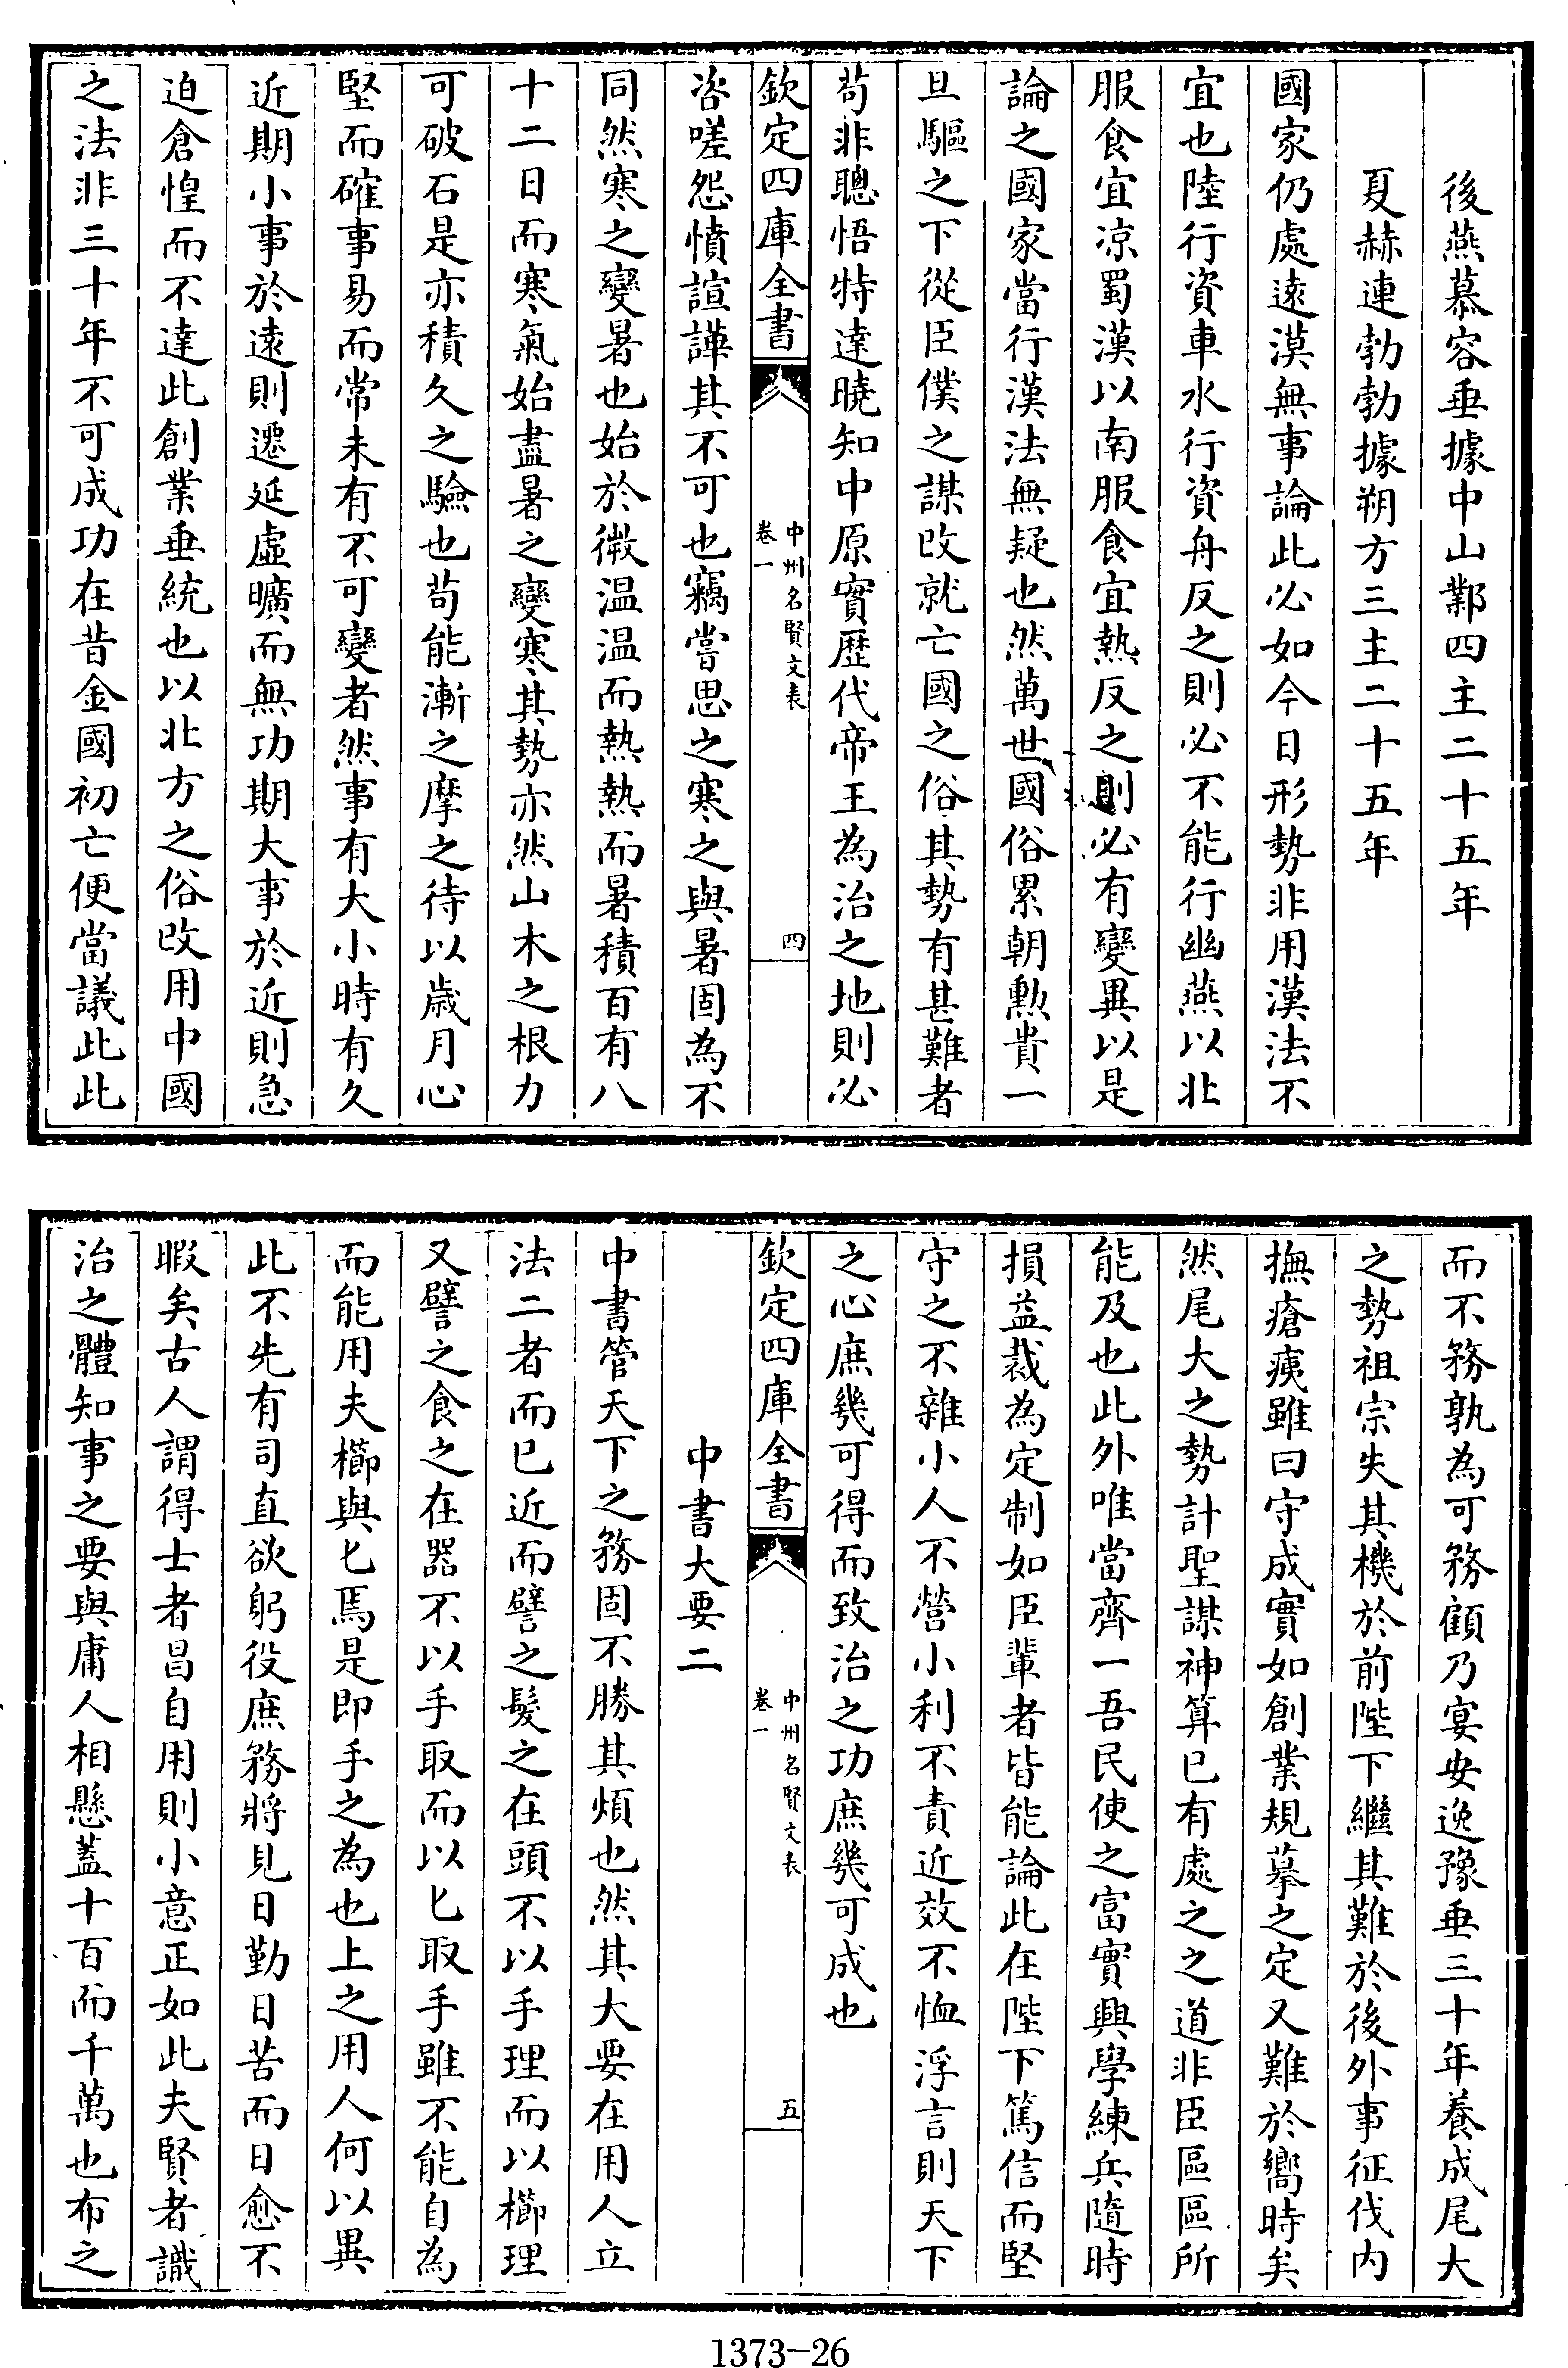 後燕慕容垂據中山鄴四主二十五年
夏赫連勃勃據朔方三主二十五年
國家仍處逺漠無事論此必如今日形勢非用漢法不
宜也陸行資車水行資舟反之則必不能行幽燕以北
服食宜凉蜀漢以南服食宜熱反之則必有變異以是
論之國家當行漢法無疑也然萬世國俗累朝勲貴一
旦驅之下從臣僕之謀改就亡國之俗其勢有甚難者
茍非聰悟特達曉知中原實歴代帝王為治之地則必
欽定四庫全書
中州名賢文表
卷一
四
咨嗟怨憤諠譁其不可也竊嘗思之寒之與暑固為不
同然寒之變暑也始於微温温而熱熱而暑積百有八
十二日而寒氣始盡暑之變寒其勢亦然山木之根力
可破石是亦積久之驗也茍能漸之摩之待以歳月心
堅而確事易而常未有不可變者然事有大小時有久
近期小事於逺則遷延虚曠而無功期大事於近則急
迫倉惶而不達此創業垂統也以北方之俗改用中國
之法非三十年不可成功在昔金國初亡便當議此此
而不務孰為可務顧乃宴安逸豫垂三十年養成尾大
之勢祖宗失其機於前陛下繼其難於後外事征伐内
撫瘡痍雖曰守成實如創業規摹之定又難於嚮時矣
然尾大之勢計聖謀神算已有處之之道非臣區區所
能及也此外唯當齊一吾民使之富實興學練兵隨時
損益裁為定制如臣輩者皆能論此在陛下篤信而堅
守之不雜小人不營小利不責近效不恤浮言則天下
之心庶幾可得而致治之功庶幾可成也
欽定四庫全書
中州名賢文表
卷一
五
中書大要二
中書管天下之務固不勝其煩也然其大要在用人立
法二者而已近而譬之髮之在頭不以手理而以櫛理
又譬之食之在器不以手取而以匕取手雖不能自為
而能用夫櫛與匕焉是即手之為也上之用人何以異
此不先有司直欲躬役庶務將見日勤日苦而日愈不
暇矣古人謂得士者昌自用則小意正如此夫賢者識
治之體知事之要與庸人相懸蓋十百而千萬也布之
1373-26